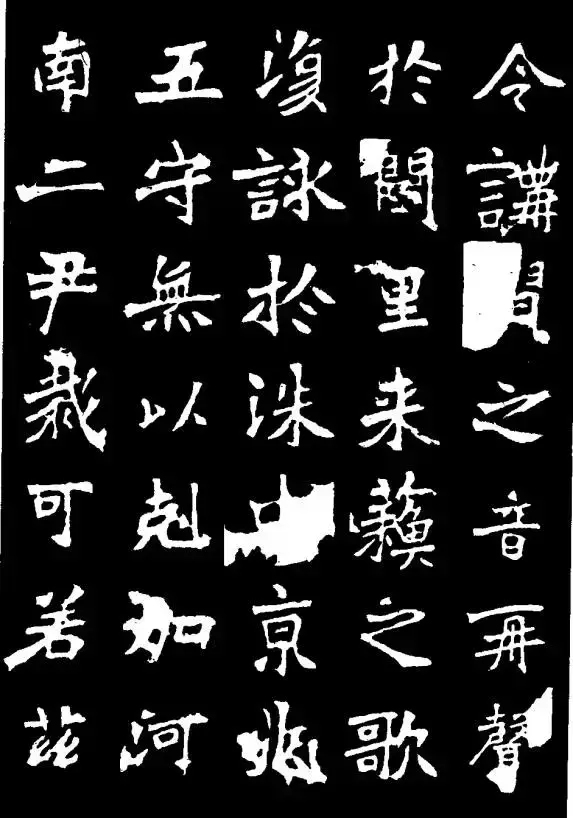 令講之音再聲
於闕里来蘓之歌
復詠於洙中京兆
五守無以剋加河
南二尹裁可若茲